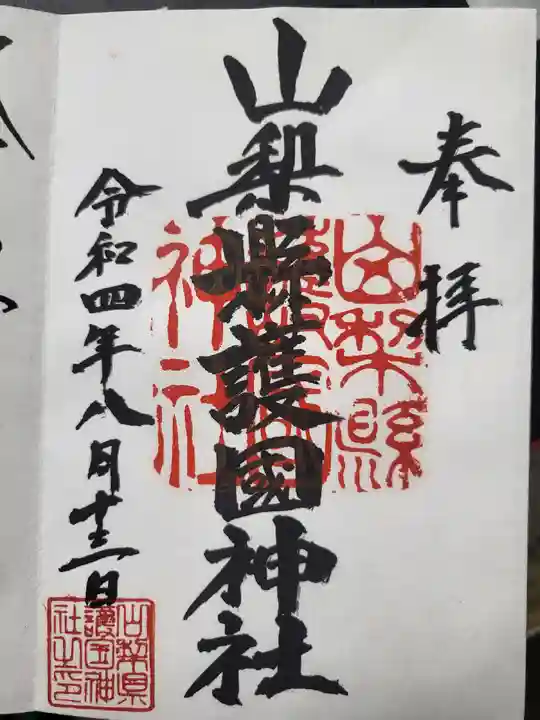 奉拝
山梨縣護國神社
山梨縣護國神社
令和四年八月十三日
山梨県護国神社之印